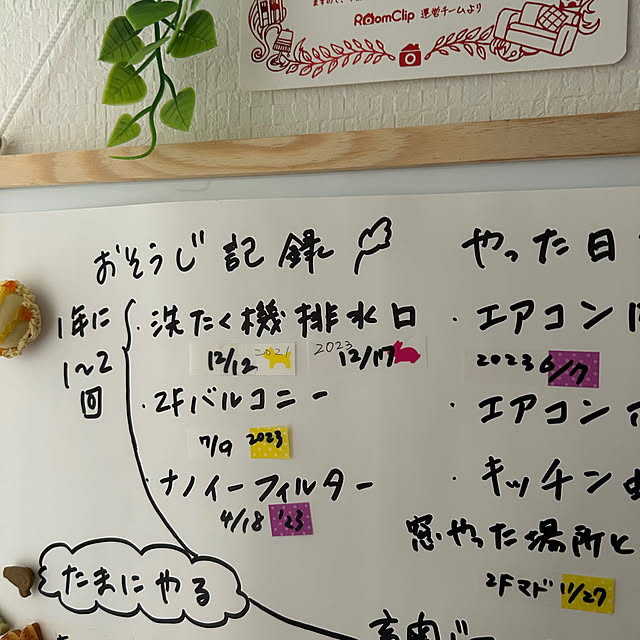 RoomClip 運営チームより
おそうじ記録
やった日
1年に
1〜2
回
・洗たく機排水口
12/12 2021
2023 12/17
・2Fバルコニー
7/9 2023
・ナノイーフィルター
4/18 '23
たまにやる
・エアコン
2023 6/7
・エアコン
・キッチン
窓やった場所と
2Fマド 11/27